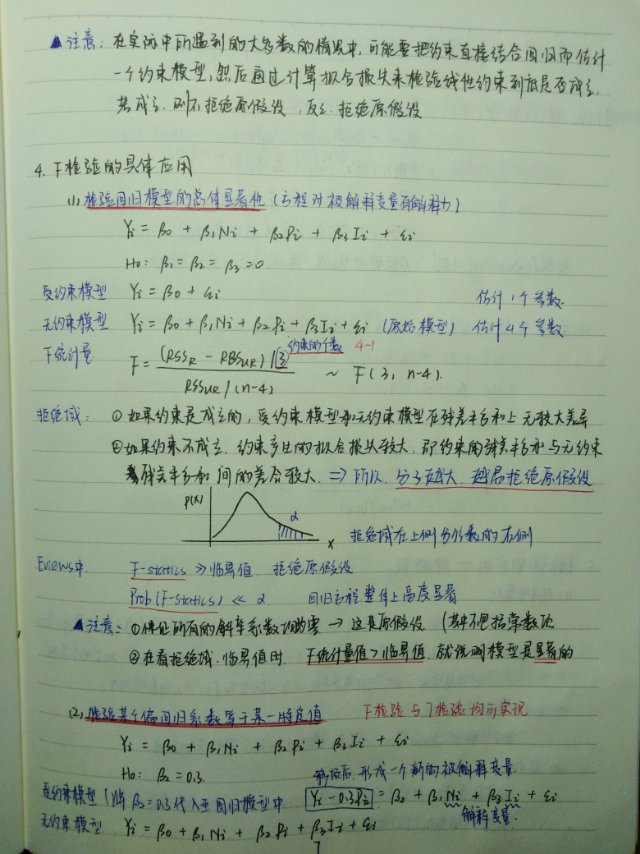 ▲注意：在实际中所遇到的大多数的情况中，可能要把约束直接结合回归而估计
一个约束模型，然后通过计算拟合损失来检验线性约束到底是否成立，
若成立，则不拒绝原假设，反之，拒绝原假设
4. F检验的具体应用
(1) 检验回归模型的总体显著性（方程对被解释变量有解释力）
Yi = β0 + β1Ni + β2Pi + β3Ii + εi
H0: β1 = β2 = β3 = 0
受约束模型 Yi = β0 + εi 估计1个参数
无约束模型 Yi = β0 + β1Ni + β2Pi + β3Ii + εi (原始模型) 估计4个参数
F统计量 F = (RSSR - RSSUR) / 3 约束的个数 4-1
RSSUR / (n-4) ~ F(3, n-4)
拒绝域： ①如果约束是成立的，受约束模型和无约束模型在残差平方和上无较大差异
②如果约束不成立，约束产生的拟合损失较大，即约束的残差平方和与无约束
残差平方和间的差会较大，⇒ 所以，分子越大，越易拒绝原假设
P(X) α x 拒绝域在上侧分位数的右侧
Eviews中 F-statics ≫ 临界值 拒绝原假设
Prob(F-statics) ≪ α 回归方程整体上高度显著
▲注意：①保证所有的解释系数均为零 → 这是原假设（其中不包括常数项
②在看拒绝域、临界值时，F统计量值>临界值，就说明模型是显著的
(2) 检验某个偏回归系数等于某一特定值 F检验与T检验均可实现
Yi = β0 + β1Ni + β2Pi + β3Ii + εi
H0: β2 = 0.3 移项后形成一个新的被解释变量
受约束模型 (将β2=0.3代入至回归模型中 Yi - 0.3Pi = β0 + β1Ni + β3Ii + εi
解释变量
无约束模型 Yi = β0 + β1Ni + β2Pi + β3Ii + εi